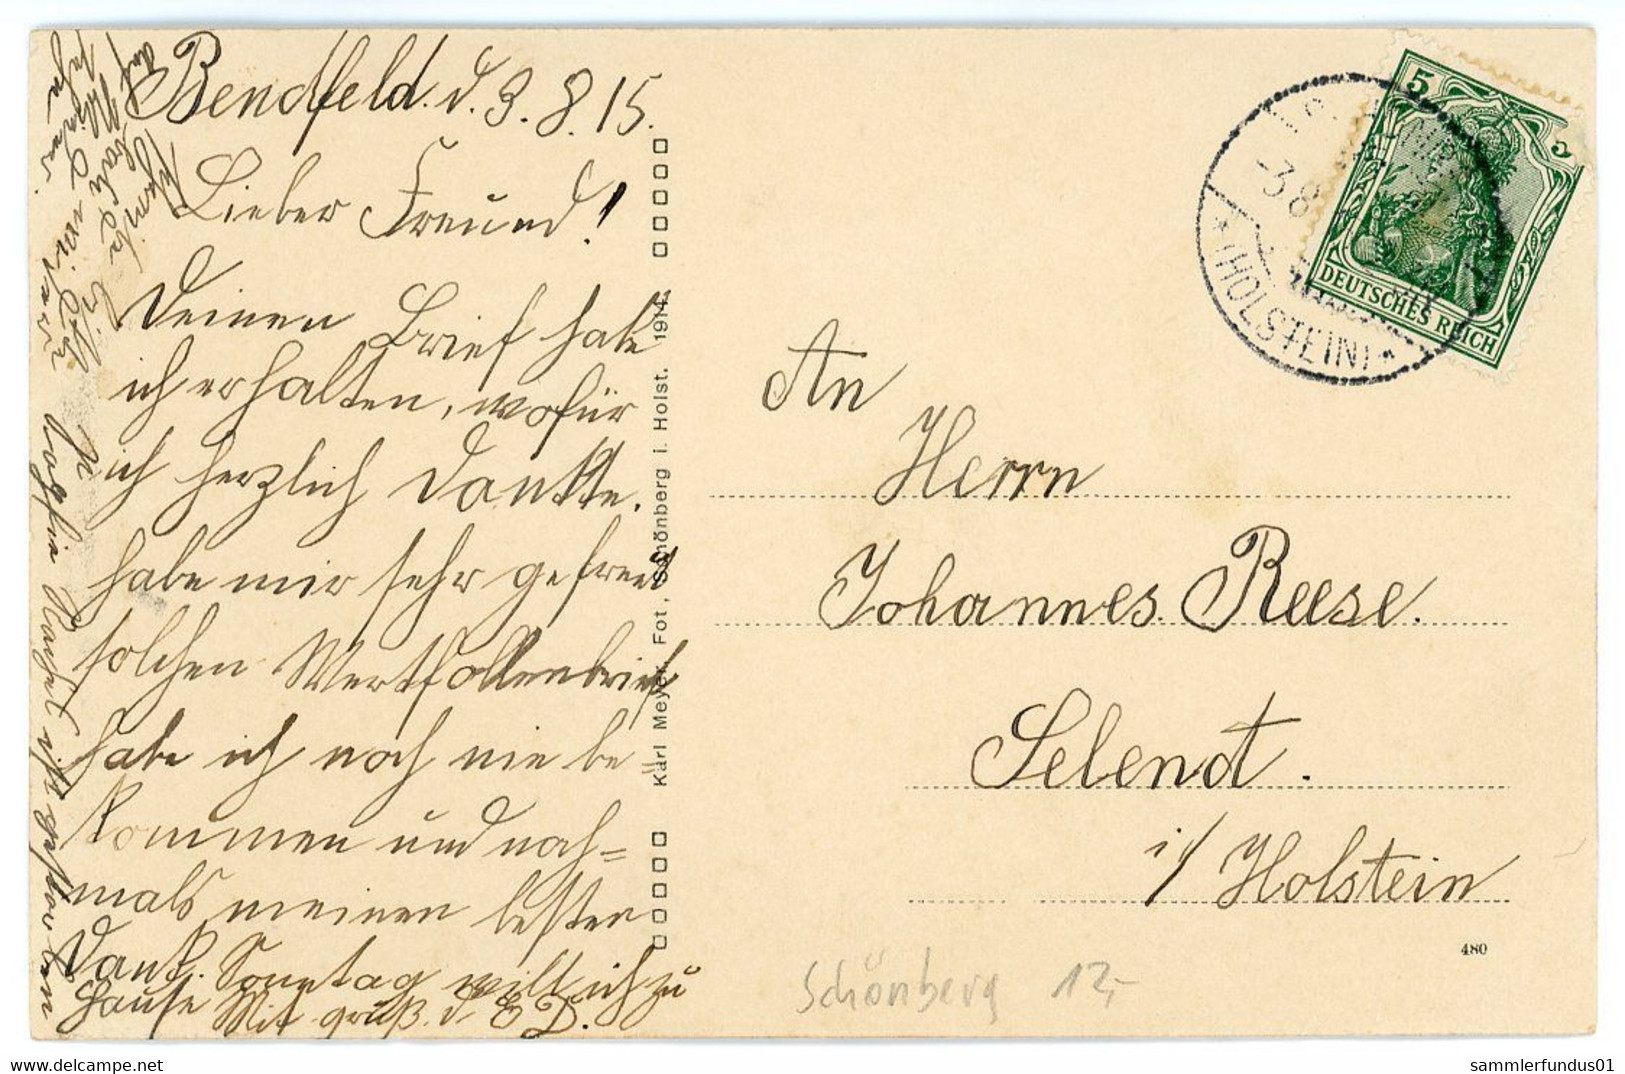 Bendfeld. d. 3. 8. 15.
Lieber Freund!
Deinen Brief habe
ich erhalten, wofür
ich herzlich Dankte.
habe mir sehr gefreut
solchen Wertfollenbrief
habe ich noch nie be=
kommen und noch=
mals meinen besten
Dank. Sonntag will ich zu
Hause Mit gruß. d. E D.
ist gestorben
Karl Meyer, Fot., Schönberg i. Holst. 1914.
5
5
DEUTSCHES REICH
-3.8
* (HOLSTEIN) *
An
Herrn
Johannes. Reese.
Selendt.
i/ Holstein
480
Schönberg 12,-
sammlerfundus01